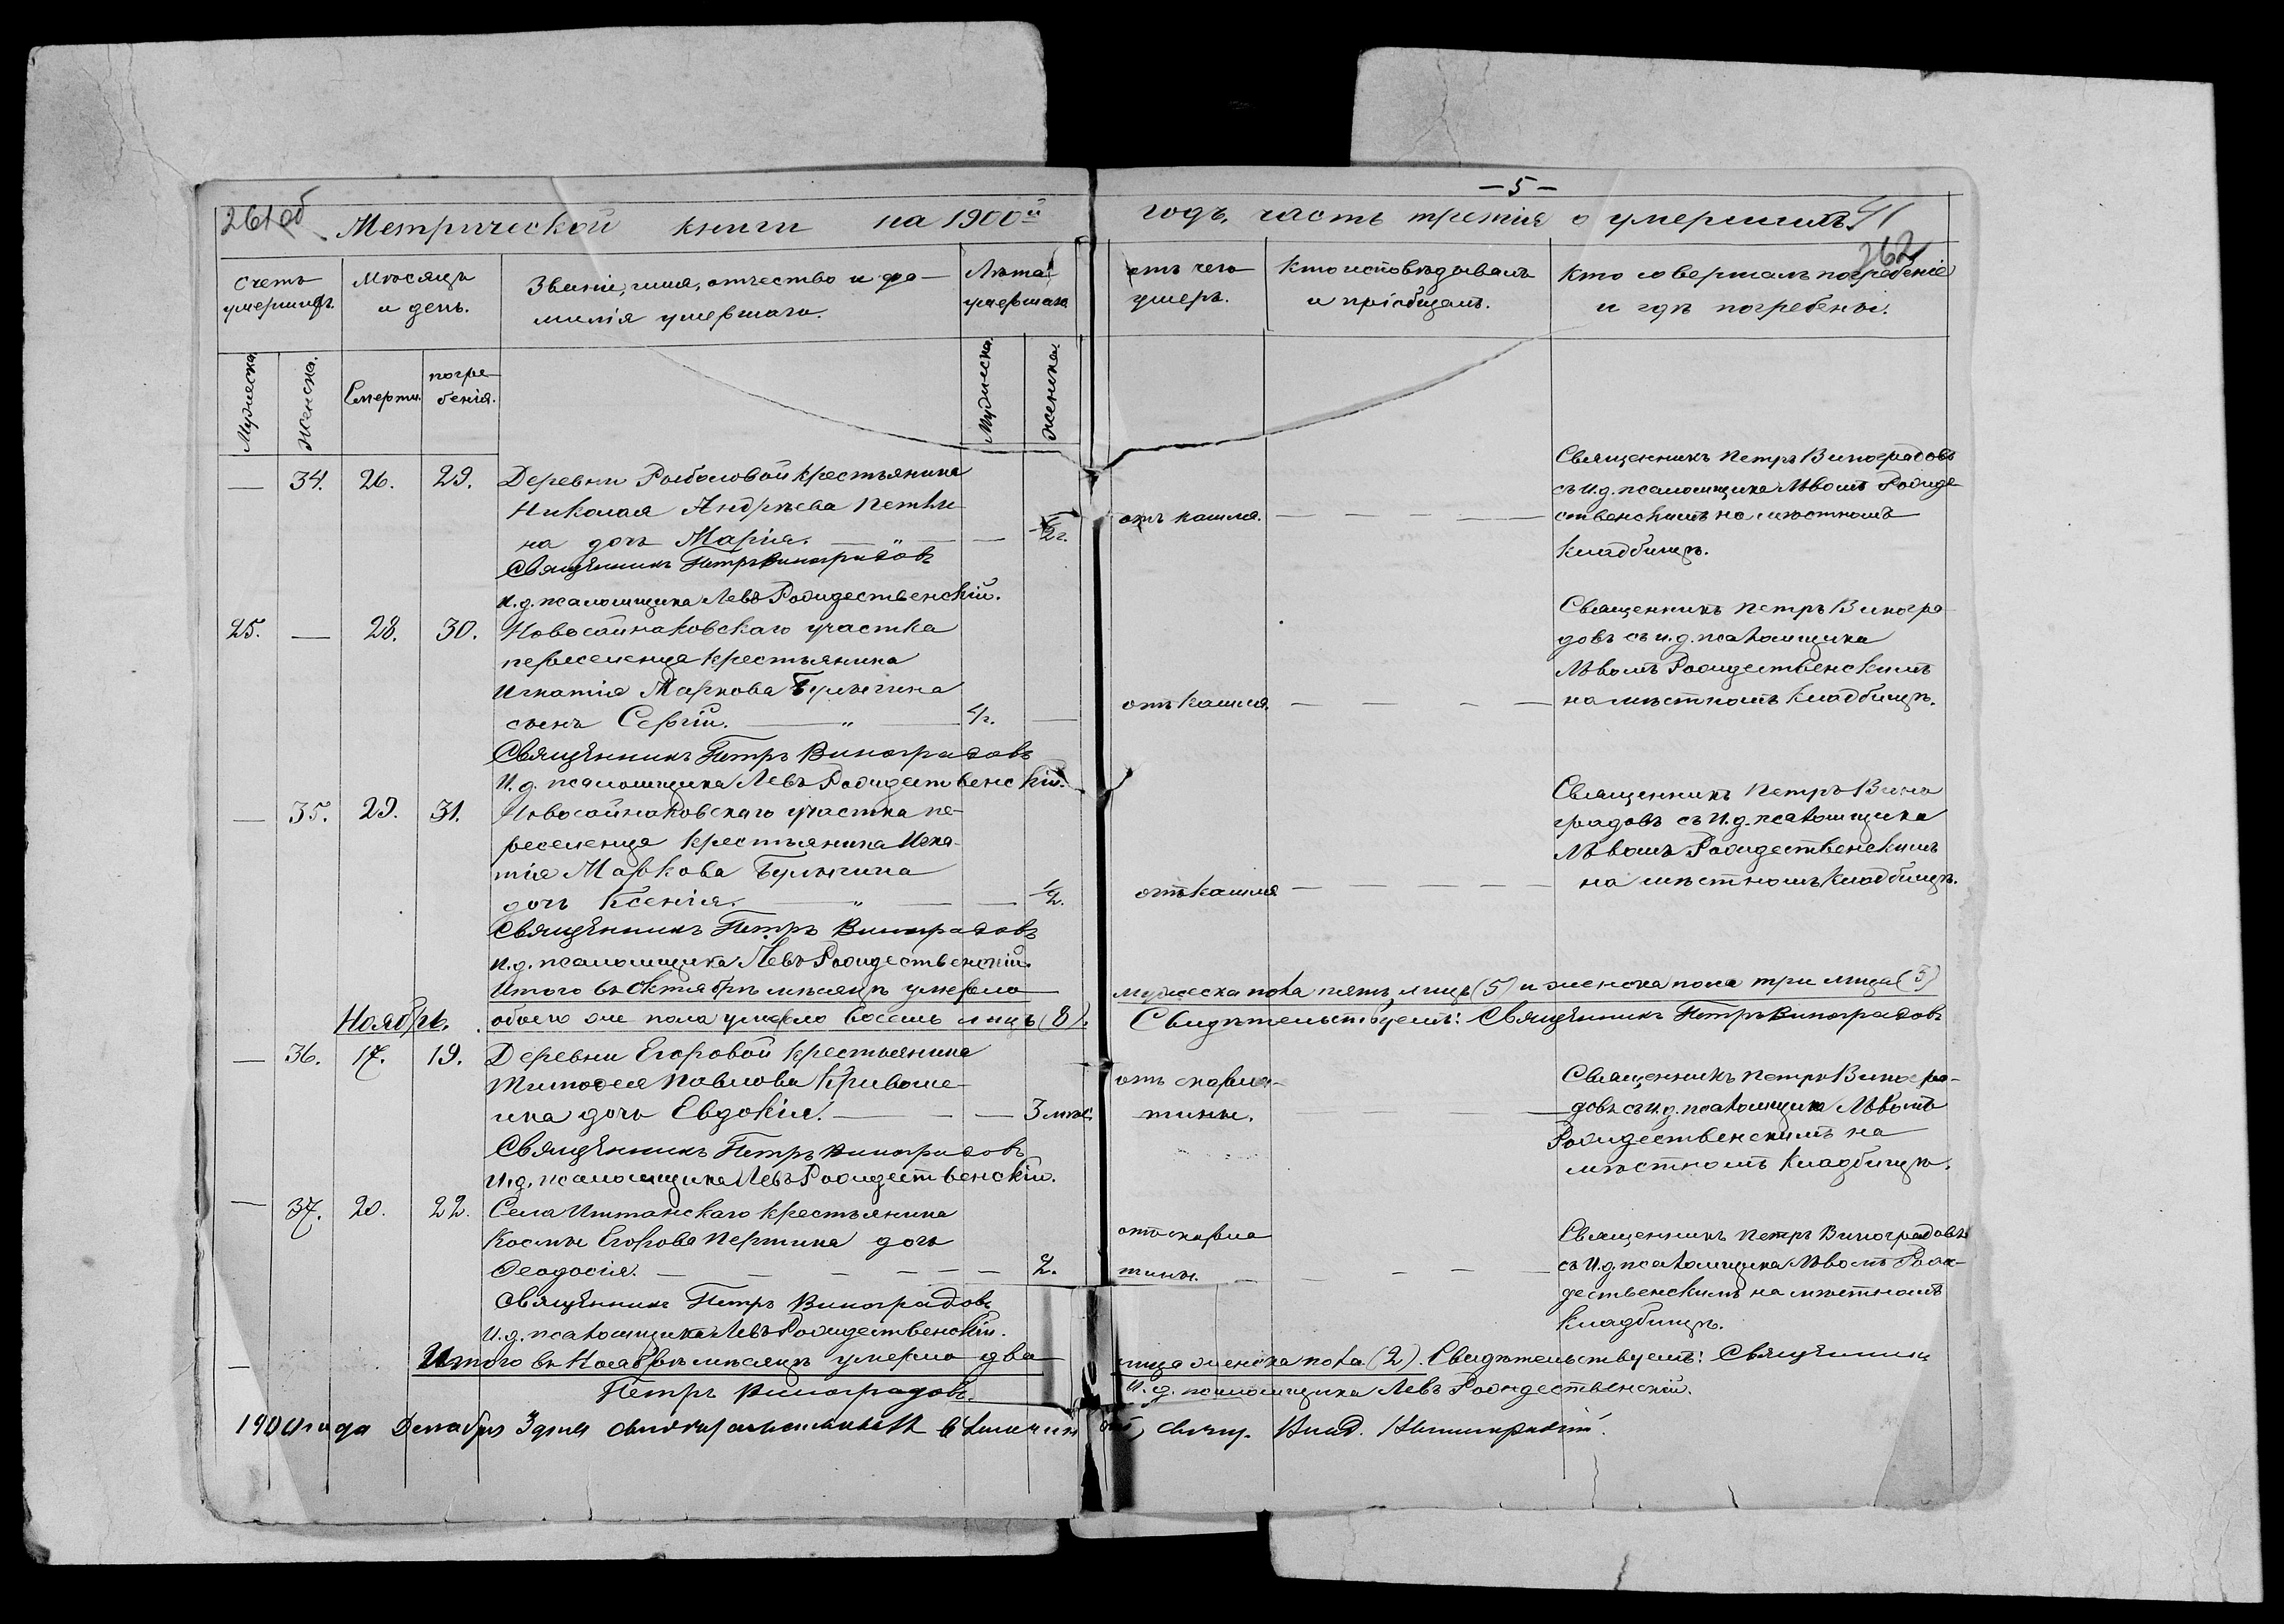 261 об
Метрической книги на 1900й
счетъ умершихъ.
Мѣсяцъ и день.
Званіе, имя, отчество и фа-
милія умершаго.
Лѣта умершаго
Мужеска.
Женска.
Смерти.
погре-
бенія.
Мужеска.
Женска.
— 34. 26. 29. Деревни Рыболовой крестьянина
Николая Андрѣева
на дочь Марія. — „ — — 1/2 г.
Священникъ Петръ Виноградовъ
И.д. псаломщика Левъ Рождественскій.
25. — 28. 30. Новосайнаковскаго участка
переселенца крестьянина
Игнатія Маркова
сынъ Сергій. — „ — 4 г. —
Священникъ Петръ Виноградовъ
И.д. псаломщика Левъ Рождественскій.
— 35. 29. 31. Новосайнаковскаго участка пе-
реселенца крестьянина Игна-
тія Маркова
дочь Ксенія. — „ — — 1/2.
Священникъ Петръ Виноградовъ
И.д. псаломщика Левъ Рождественскій.
Итого въ Октябрѣ мѣсяцѣ умерло
Ноябрь. обоего же пола умерло восемь лицъ (8).
— 36. 17. 19. Деревни Егоровой крестьянина
Тимофея Павлова Кривоше-
ина дочь Евдокія. — — — 3 мѣс.
Священникъ Петръ Виноградовъ
И.д. псаломщика Левъ Рождественскій.
— 37. 20. 22. Села Иттанскаго крестьянина
Космы Егорова Пертина дочь
Феодосія. — — — — — — 2.
Священникъ Петръ Виноградовъ
И.д. псаломщика Левъ Рождественскій.
Итого въ Ноябрѣ мѣсяцѣ умерло два
Петръ Виноградовъ.
1900 года Декабря 3 дня
— 5 —
годъ, часть третія о умершихъ. 41
262
отъ чего умеръ.
Кто исповѣдывалъ
и пріобщалъ.
Кто совершалъ погребеніе
и гдѣ погребены.
Священникъ Петръ Виноградовъ
съ И.д. псаломщика Львомъ Рожде-
отъ кашля. — — — — ственскимъ на мѣстномъ
кладбищѣ.
Священникъ Петръ Виногра-
довъ съ и.д. псаломщика
Львомъ Рождественскимъ
отъ кашля. — — — — на мѣстномъ кладбищѣ.
Священникъ Петръ Вино
градовъ съ И.д. псаломщика
Львомъ Рождественскимъ
отъ кашля — — — — — на мѣстномъ кладбищѣ.
мужеска пола пять лицъ (5) и женска пола три лица (3)
Свидѣтельствуемъ: Священникъ Петръ Виноградовъ
отъ скарла- Священникъ Петръ Виногра-
тины. — — довъ съ и.д. псаломщика Львомъ
Рождественскимъ на
мѣстномъ кладбищѣ.
отъ скарла Священникъ Петръ Виноградовъ
тины. — — — — — съ И.д. псаломщика Львомъ Рож-
дественскимъ на мѣстномъ
кладбищѣ.
лица женска пола (2). Свидѣтельствуемъ: Священникъ
И.д. псаломщика Левъ Рождественскій.